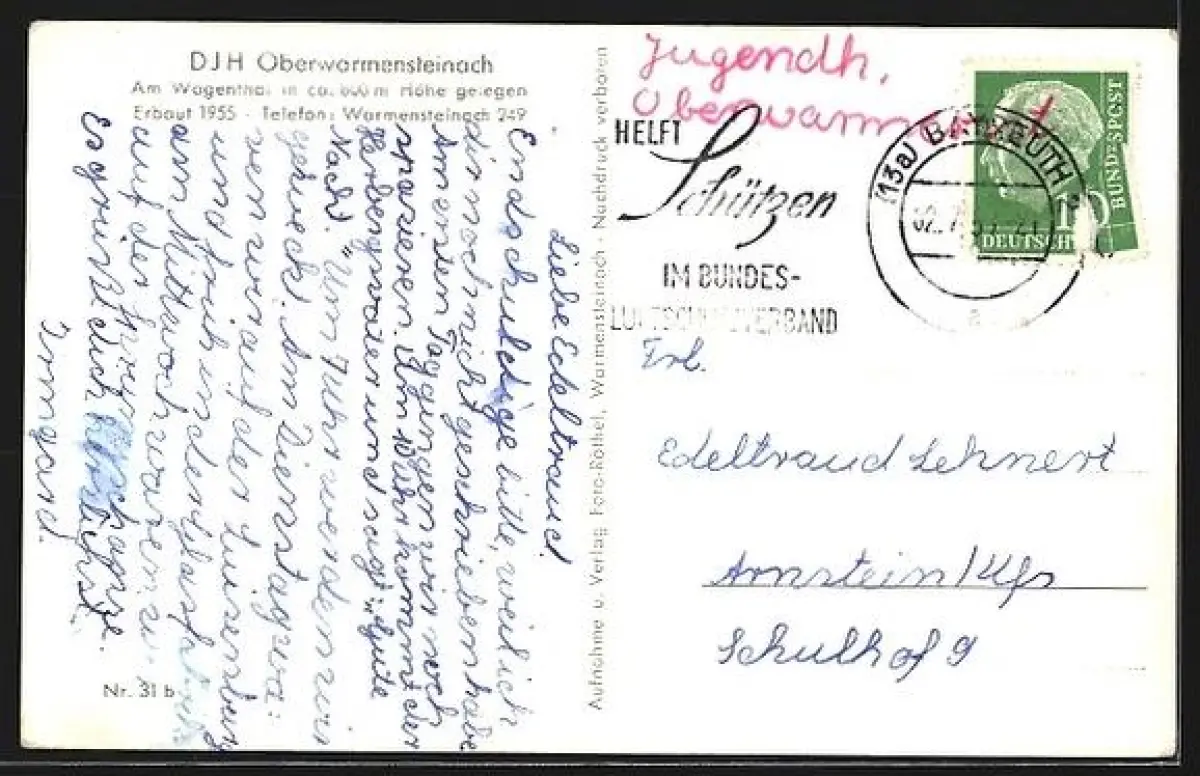 DJH Oberwarmensteinach
Am Wagenthal in ca. 800 m Höhe gelegen
Erbaut 1955 - Telefon: Warmensteinach 249
Liebe Edeltraud!
Entschuldige bitte, weil ich
dir noch nicht geschrieben habe
Am ersten Tag gingen wir noch
spazieren. Um 10 Uhr kommt der
Herbergsvater und sagt: „Gute
Nacht." Um 7 Uhr werden wir
geweckt. Am Dienstag wa-
ren wir auf der Luisenburg
und früh in der Glasfabrik
am Mittwoch waren wir
auf der
Es grüßt dich herzlichst
Irmgard.
Nr. 31 b
Aufnahme u. Verlag Foto-Röthel, Warmensteinach - Nachdruck verboten
Jugendh.
Oberwarm
HELFT
Schützen
IM BUNDES-
LUFTSCHUTZVERBAND
(13a) BAYREUTH 2
a
DEUTSCHE
BUNDESPOST
10
Frl.
Edeltraud Lehnert
Arnstein/Ufr
Schulhof 9